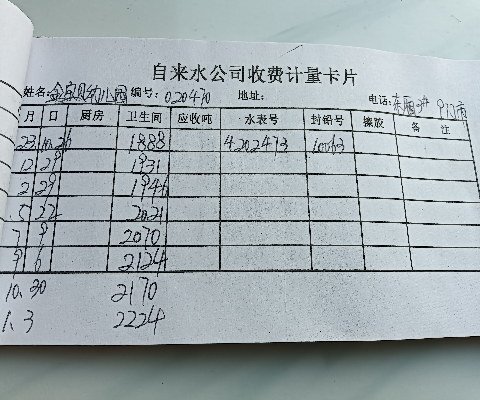 自来水公司收费计量卡片
姓名: 金宝贝幼儿园 编号: 020470 地址: 电话: 东厢
月 日 厨房 卫生间 应收吨 水表号 封铅号 橡胶 备注
23.10.26 1888 4202473 10063
12 29 1931
2 29 1946
5 22 2021
7 9 2070
9 6 2124
10.30 2170
1.3 2224